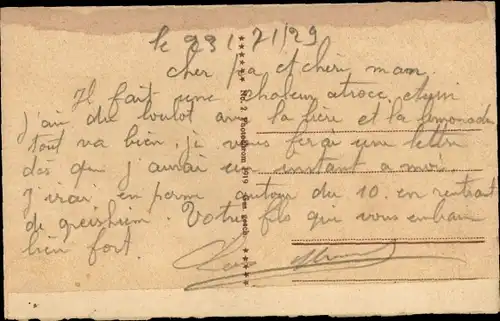 le 23/7/29
cher pa et chéri mam.
Il fait une chaleur atroce
j'ai du boulot avec la bière et la limonade
tout va bien, je vous ferai une lettre
dès que j'aurai un instant a moi.
j'irai en perme autour du 10. en rentrant
de Votre fils qui vous embrasse
bien fort.
No. 2 Photochrom 1919 Ges. gesch.